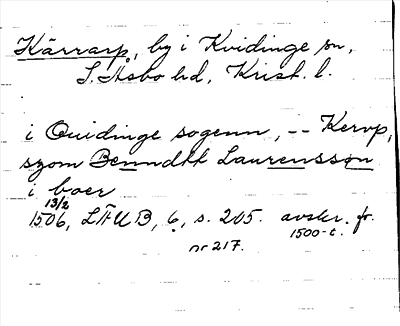 Kärrarp, by i Kvidinge sn,
S. Åsbo hd, Krist. l.
i Quidinge sogenn, -- Kerrp,
szom Benndtt Laurensson
i boer
13/2
1506, LÄUB, 6, s. 205. avskr. fr.
1500-t.
nr 217.